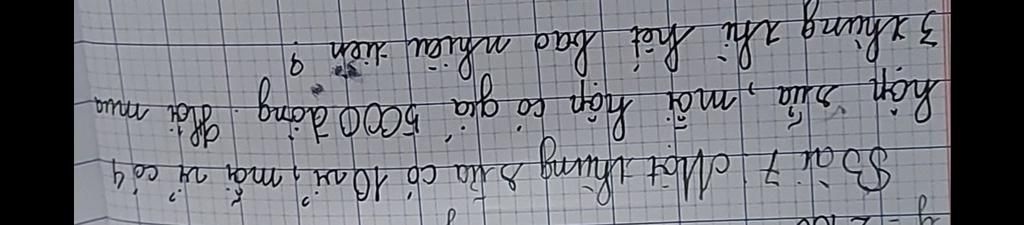 Bài 7 Một thùng sữa có 10 vỉ, mỗi vỉ có 4
hộp sữa, mỗi hộp có giá 5000 đồng. Hỏi mua
3 thùng thì hết bao nhiêu tiền ?